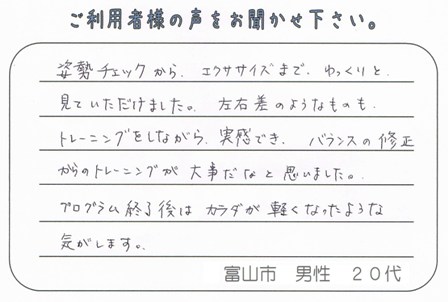 ご利用者様の声をお聞かせ下さい。
姿勢チェックから、エクササイズまで、ゆっくりと、
見ていただけました。左右差のようなものも、
トレーニングをしながら、実感でき、バランスの修正
からのトレーニングが大事だなと思いました。
プログラム終了後はカラダが軽くなったような
気がします。
富山市 男性 20代